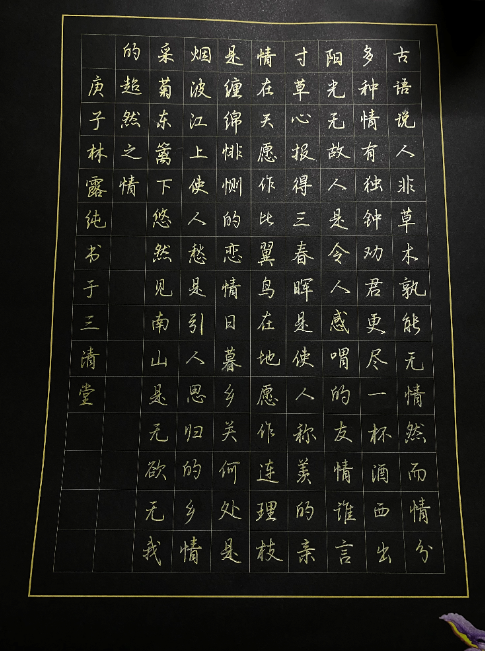 古语说人非草木孰能无情然而情分
多种情有独钟劝君更尽一杯酒西出
阳光无故人是令人感喟的友情谁言
寸草心报得三春晖是使人称羡的亲
情在天愿作比翼鸟在地愿作连理枝
是缠绵悱恻的恋情日暮乡关何处是
烟波江上使人愁是引人思归的乡情
采菊东篱下悠然见南山是无欲无我
的超然之情
庚子林露纯书于三清堂